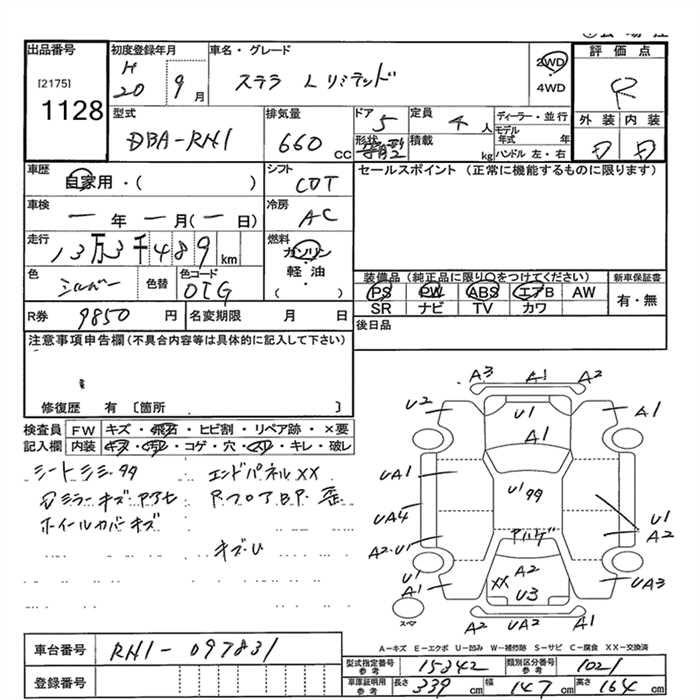 出品番号
[2175]
1128
初度登録年月
H
20 9月
車名・グレード
ステラ Lリミテッド
2WD
4WD
評価点
R
外装 内装
D D
型式
DBA-RN1
排気量
660 cc
ドア
5
定員
4人
形状
箱型
積載
kg
ディーラー・並行
モデル年式 年
ハンドル 左・右
車歴
自家用・( )
シフト
CDT
車検
ー年ー月(ー日)
冷房
AC
走行
13万3千489km
燃料
ガソリン
軽・油
( )
色
シルバー
色替
色コード
OIG
R券 9850円
名変期限 月 日
セールスポイント (正常に機能するものに限ります)
装備品 (純正品に限り○をつけてください)
PS PW ABS エアB AW
SR ナビ TV カワ
新車保証書
有・無
後日品
注意事項申告欄(不具合内容等は具体的に記入して下さい)
修復歴 有 〔箇所 〕
検査員記入欄
FW キズ・飛石・ヒビ割・リペア跡・×要
内装 キズ・汚れ・コゲ・穴・スリ・キレ・破レ
シートシミ・99
エンドパネルXX
ホイールカバーキズ
R.フロアB.P.歪
キズ・U
A3 A1 A2
U2 U1 A1
A1
UA1 U1 99
UA4 U1
A2
A2・U1 アルゲ
U1 A2
A1 XX U3 UA3
スペア
A2 UA2 A1
A-キズ E-エクボ U-凹み W-補修跡 S-サビ C-腐食 XX-交換済
車台番号 RN1-097831
登録番号
型式指定番号 参考 15342
類別区分番号 参考 1021
車庫証明用 参考 長さ 339cm 幅 147cm 高さ 164cm